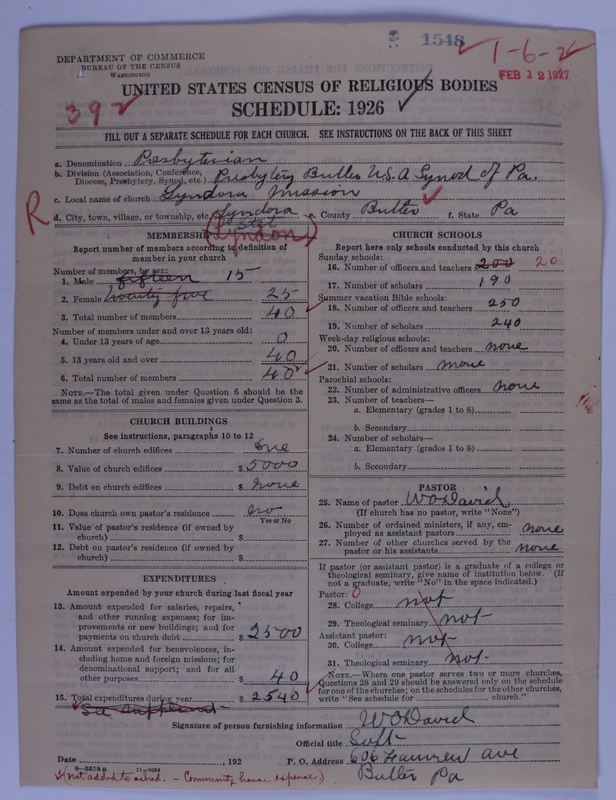 1548
1-6-2
DEPARTMENT OF COMMERCE
BUREAU OF THE CENSUS
WASHINGTON
FEB 12 1927
UNITED STATES CENSUS OF RELIGIOUS BODIES
392
SCHEDULE: 1926
FILL OUT A SEPARATE SCHEDULE FOR EACH CHURCH. SEE INSTRUCTIONS ON THE BACK OF THIS SHEET
a. Denomination Presbyterian
b. Division (Association, Conference, Diocese, Presbytery, Synod, etc.) Presbytery Butler U.S.A Synod of Pa.
c. Local name of church Lyndora Mission
R
d. City, town, village, or township, etc. Lyndora e. County Butler f. State Pa
(Lyndon)
MEMBERSHIP
Report number of members according to definition of member in your church
Number of members, by sex:
1. Male fifteen 15
2. Female twenty five 25
3. Total number of members 40
Number of members under and over 13 years old:
4. Under 13 years of age 0
5. 13 years old and over 40
6. Total number of members 40
NOTE.—The total given under Question 6 should be the same as the total of males and females given under Question 3.
CHURCH BUILDINGS
See instructions, paragraphs 10 to 12
7. Number of church edifices One
8. Value of church edifices $ 5000
9. Debt on church edifices $ none
10. Does church own pastor's residence no
Yes or No
11. Value of pastor's residence (if owned by church) $
12. Debt on pastor's residence (if owned by church) $
EXPENDITURES
Amount expended by your church during last fiscal year
13. Amount expended for salaries, repairs, and other running expenses; for improvements or new buildings; and for payments on church debt $ 2500
14. Amount expended for benevolences, including home and foreign missions; for denominational support; and for all other purposes $ 40
15. Total expenditures during year $ 2540
CHURCH SCHOOLS
Report here only schools conducted by this church
Sunday schools:
16. Number of officers and teachers 200 20
17. Number of scholars 190
Summer vacation Bible schools:
18. Number of officers and teachers 250
19. Number of scholars 240
Week-day religious schools:
20. Number of officers and teachers none
21. Number of scholars none
Parochial schools:
22. Number of administrative officers none
23. Number of teachers—
a. Elementary (grades 1 to 8)
b. Secondary
24. Number of scholars—
a. Elementary (grades 1 to 8)
b. Secondary
PASTOR
25. Name of pastor W O David
(If church has no pastor, write "None")
26. Number of ordained ministers, if any, employed as assistant pastors none
27. Number of other churches served by the pastor or his assistants none
If pastor (or assistant pastor) is a graduate of a college or theological seminary, give name of institution below. (If not a graduate, write "No" in the space indicated.)
Pastor: 0
28. College not
29. Theological seminary not
Assistant pastor:
30. College not
31. Theological seminary not
NOTE.—Where one pastor serves two or more churches, Questions 28 and 29 should be answered only on the schedule for one of the churches; on the schedules for the other churches, write "See schedule for church."
Signature of person furnishing information W O David
Official title Supt
Date , 192 P. O. Address 606 ave
8—5518a 11—9064
Butler Pa
(not added to sched. - Community house expense)